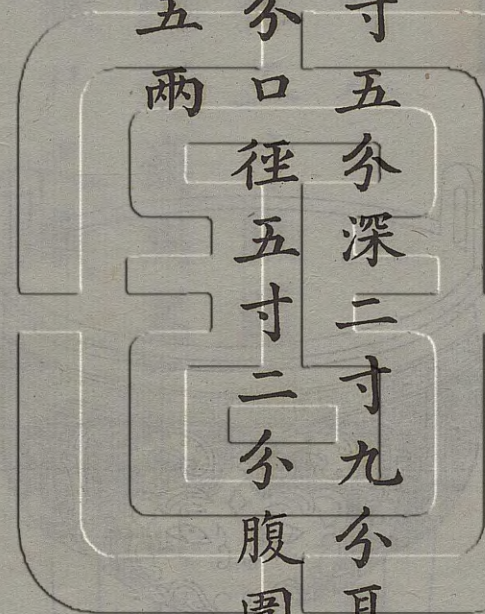 寸五分深二寸九分耳
分口徑五寸二分腹圍
五兩